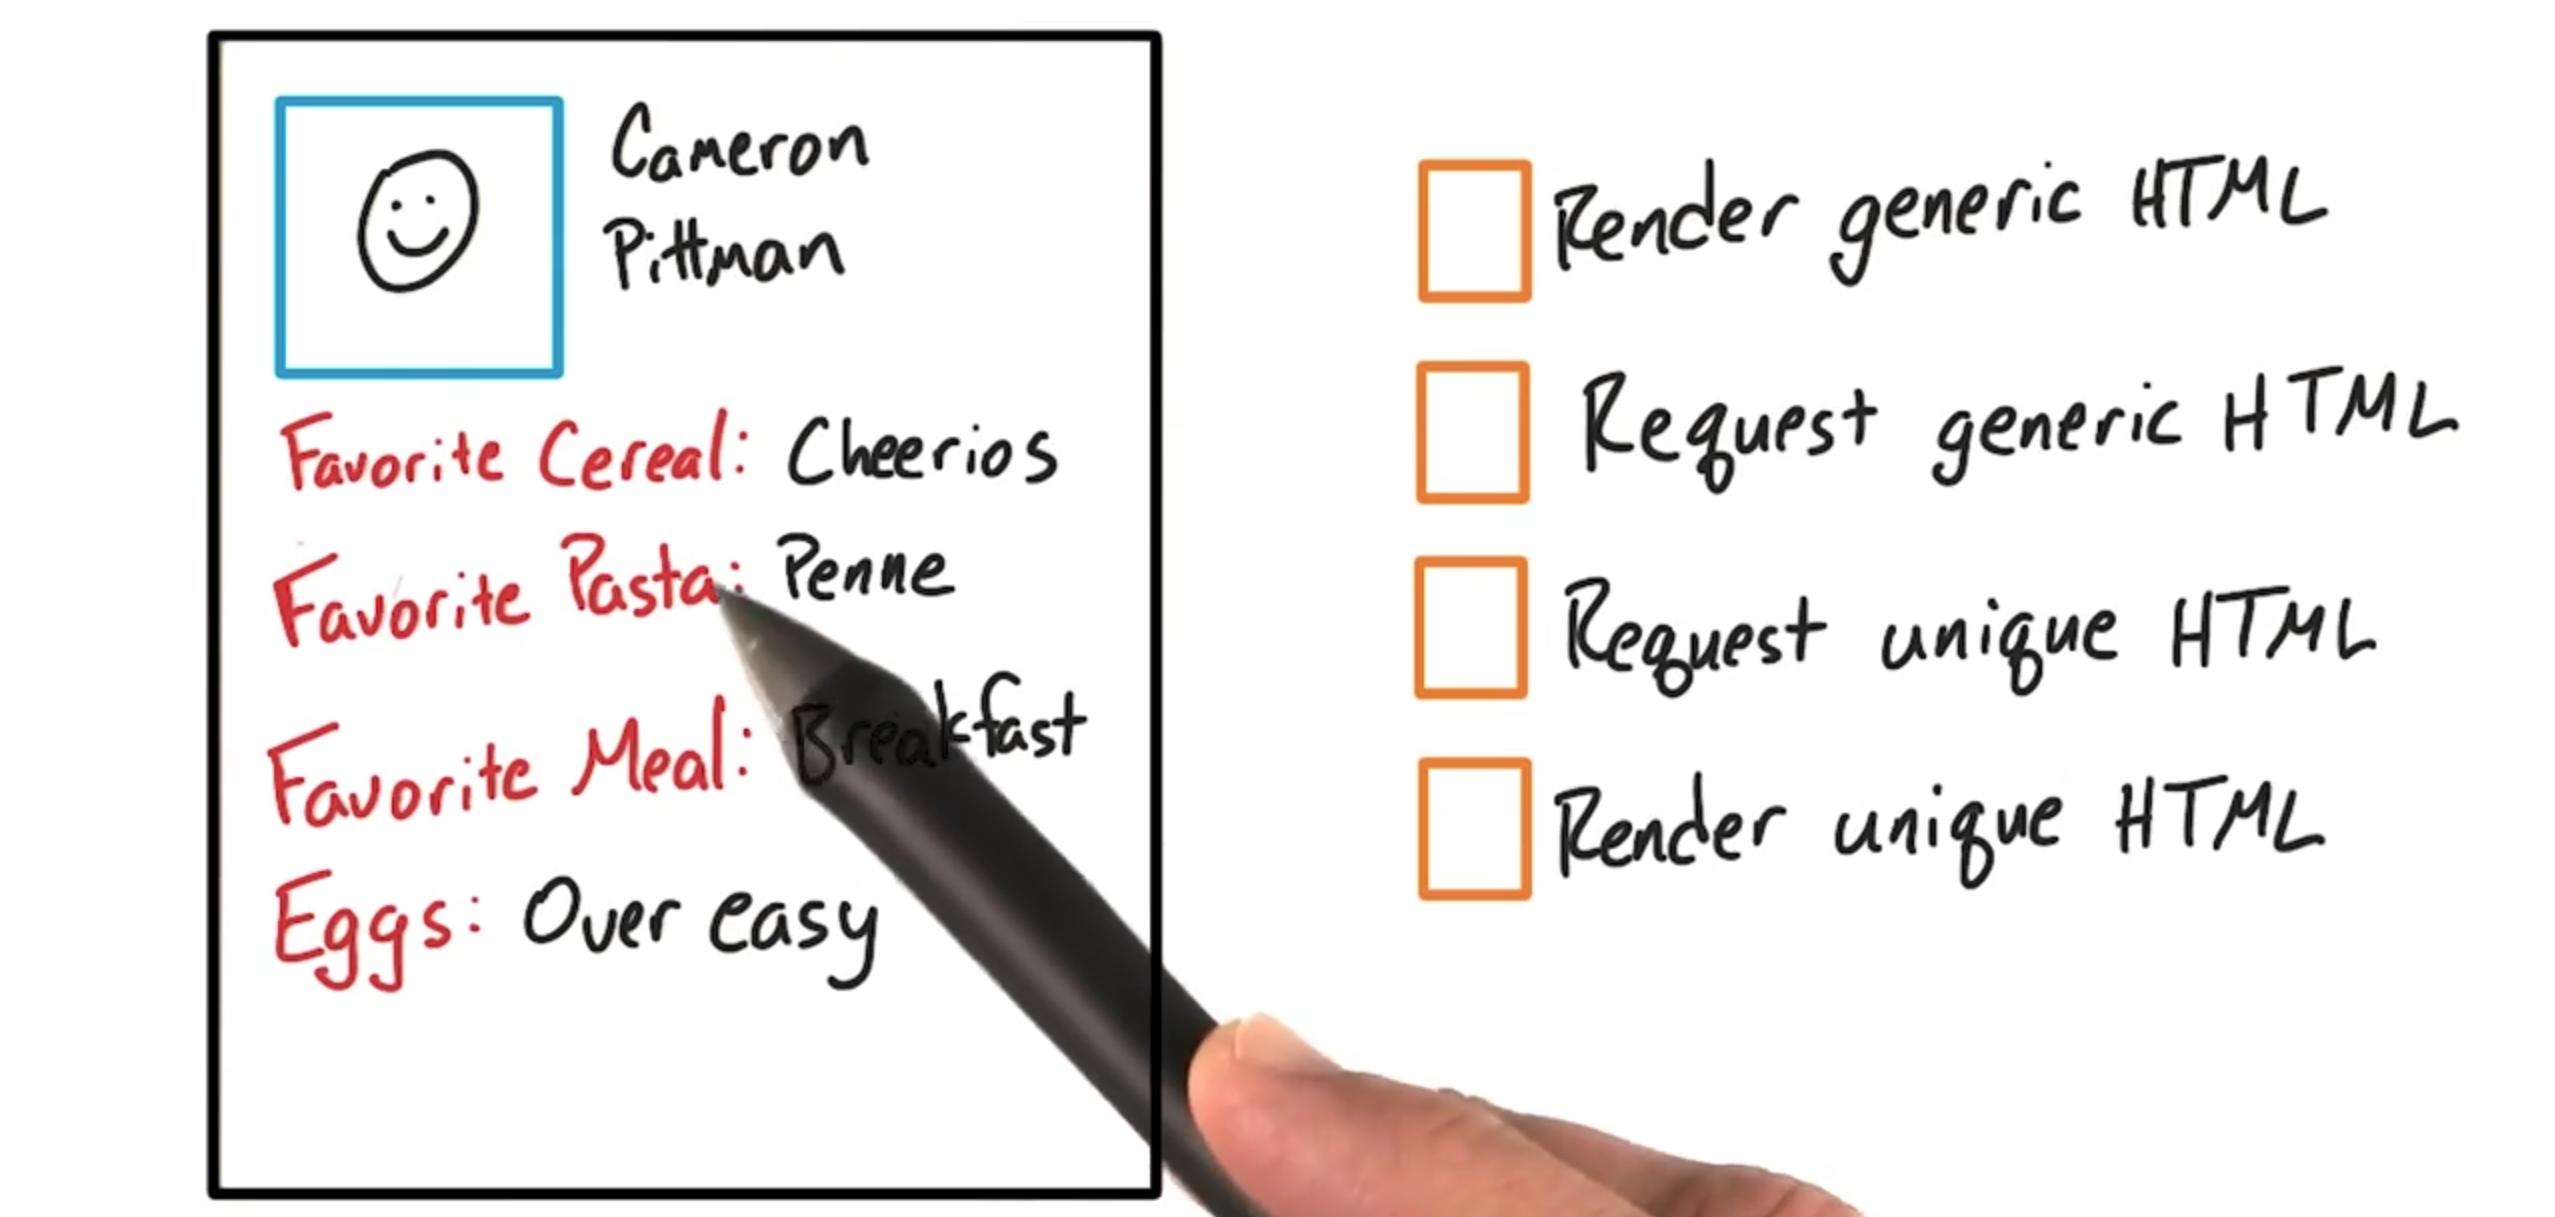 Cameron
Pittman
Favorite Cereal: Cheerios
Favorite Pasta: Penne
Favorite Meal: Breakfast
Eggs: Over easy
Render generic HTML
Request generic HTML
Request unique HTML
Render unique HTML